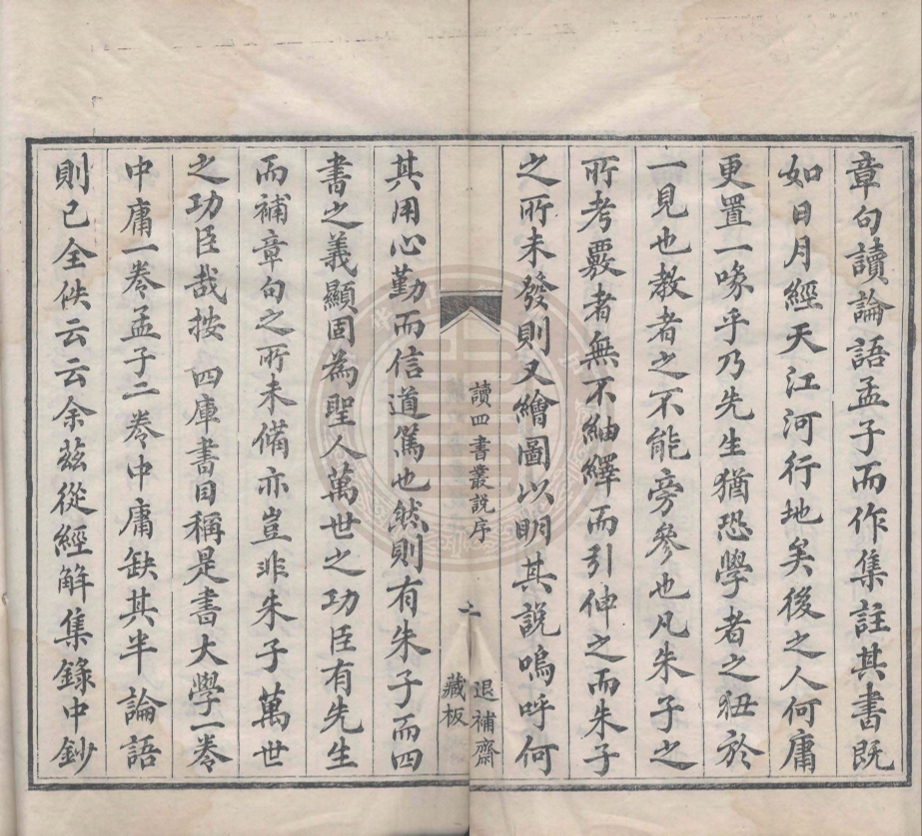 章句讀論語孟子而作集註其書既
如日月經天江河行地矣後之人何庸
更置一喙乎乃先生猶恐學者之狃於
一見也教者之不能旁參也凡朱子之
所考覈者無不紬繹而引伸之而朱子
之所未發則又繪圖以明其說嗚呼何
讀四書叢說序
二
退補齋
藏板
其用心勤而信道篤也然則有朱子而四
書之義顯固為聖人萬世之功臣有先生
而補章句之所未備亦豈非朱子萬世
之功臣哉按 四庫書目稱是書大學一卷
中庸一卷孟子二卷中庸缺其半論語
則已全佚云云余茲從經解集錄中鈔